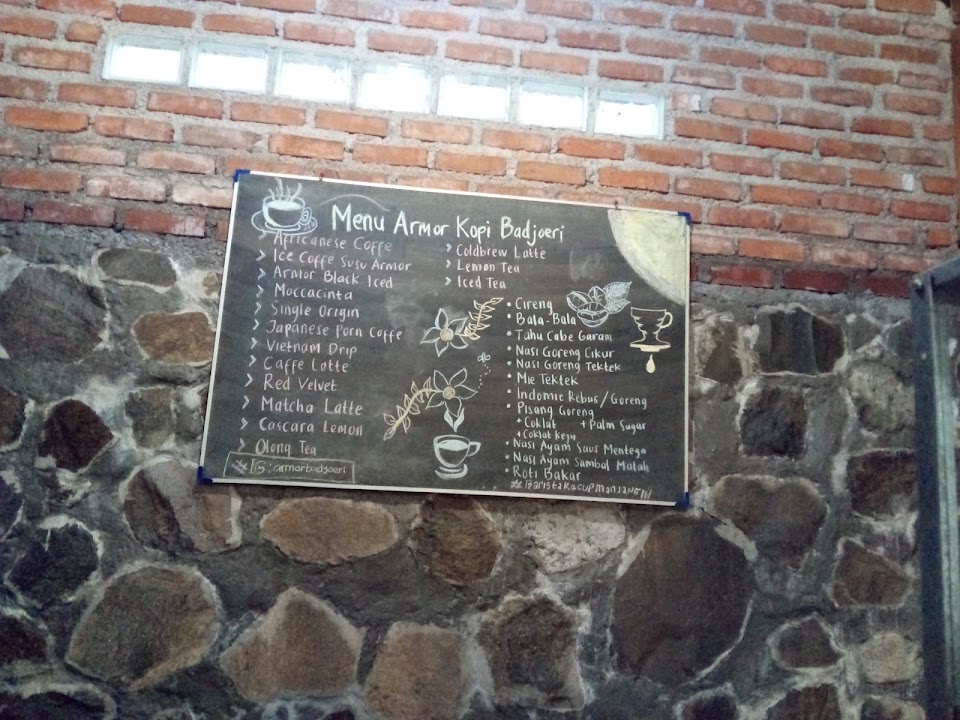 Menu Armor Kopi Badjoeri
Africanese Coffe
Ice Coffe Susu Armor
Armor Black Iced
Moccacinta
Single Origin
Japanese Porn Coffe
Vietnam Drip
Caffe Lotte
Red Velvet
Matcha Latte
Cascara Lemon
Olong Tea
# IG: armorbadjoeri
Coldbrew Latte
Lemon Tea
Iced Tea
Cireng
Bala-Bala
Tahu Cabe Garam
Nasi Goreng Cikur
Nasi Goreng Tektek
Mie Tektek
Indomie Rebus/Goreng
Pisang Goreng
+ Coklat + Palm Sugar
+ Coklat Keju
Nasi Ayam Saus Mentega
Nasi Ayam Sambal Matah
Roti Bakar